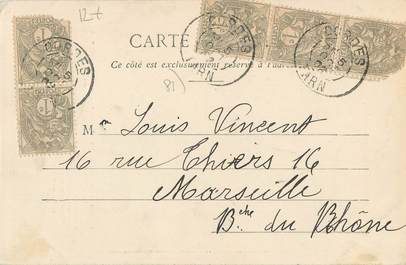 12+
CARTE
Ce côté est exclusivement réservé à l'adres
CORDES
TARN
CORDES
TARN
CORDES
81)
M Louis Vincent
16 rue Thiers 16
Marseille
B.che du Rhône